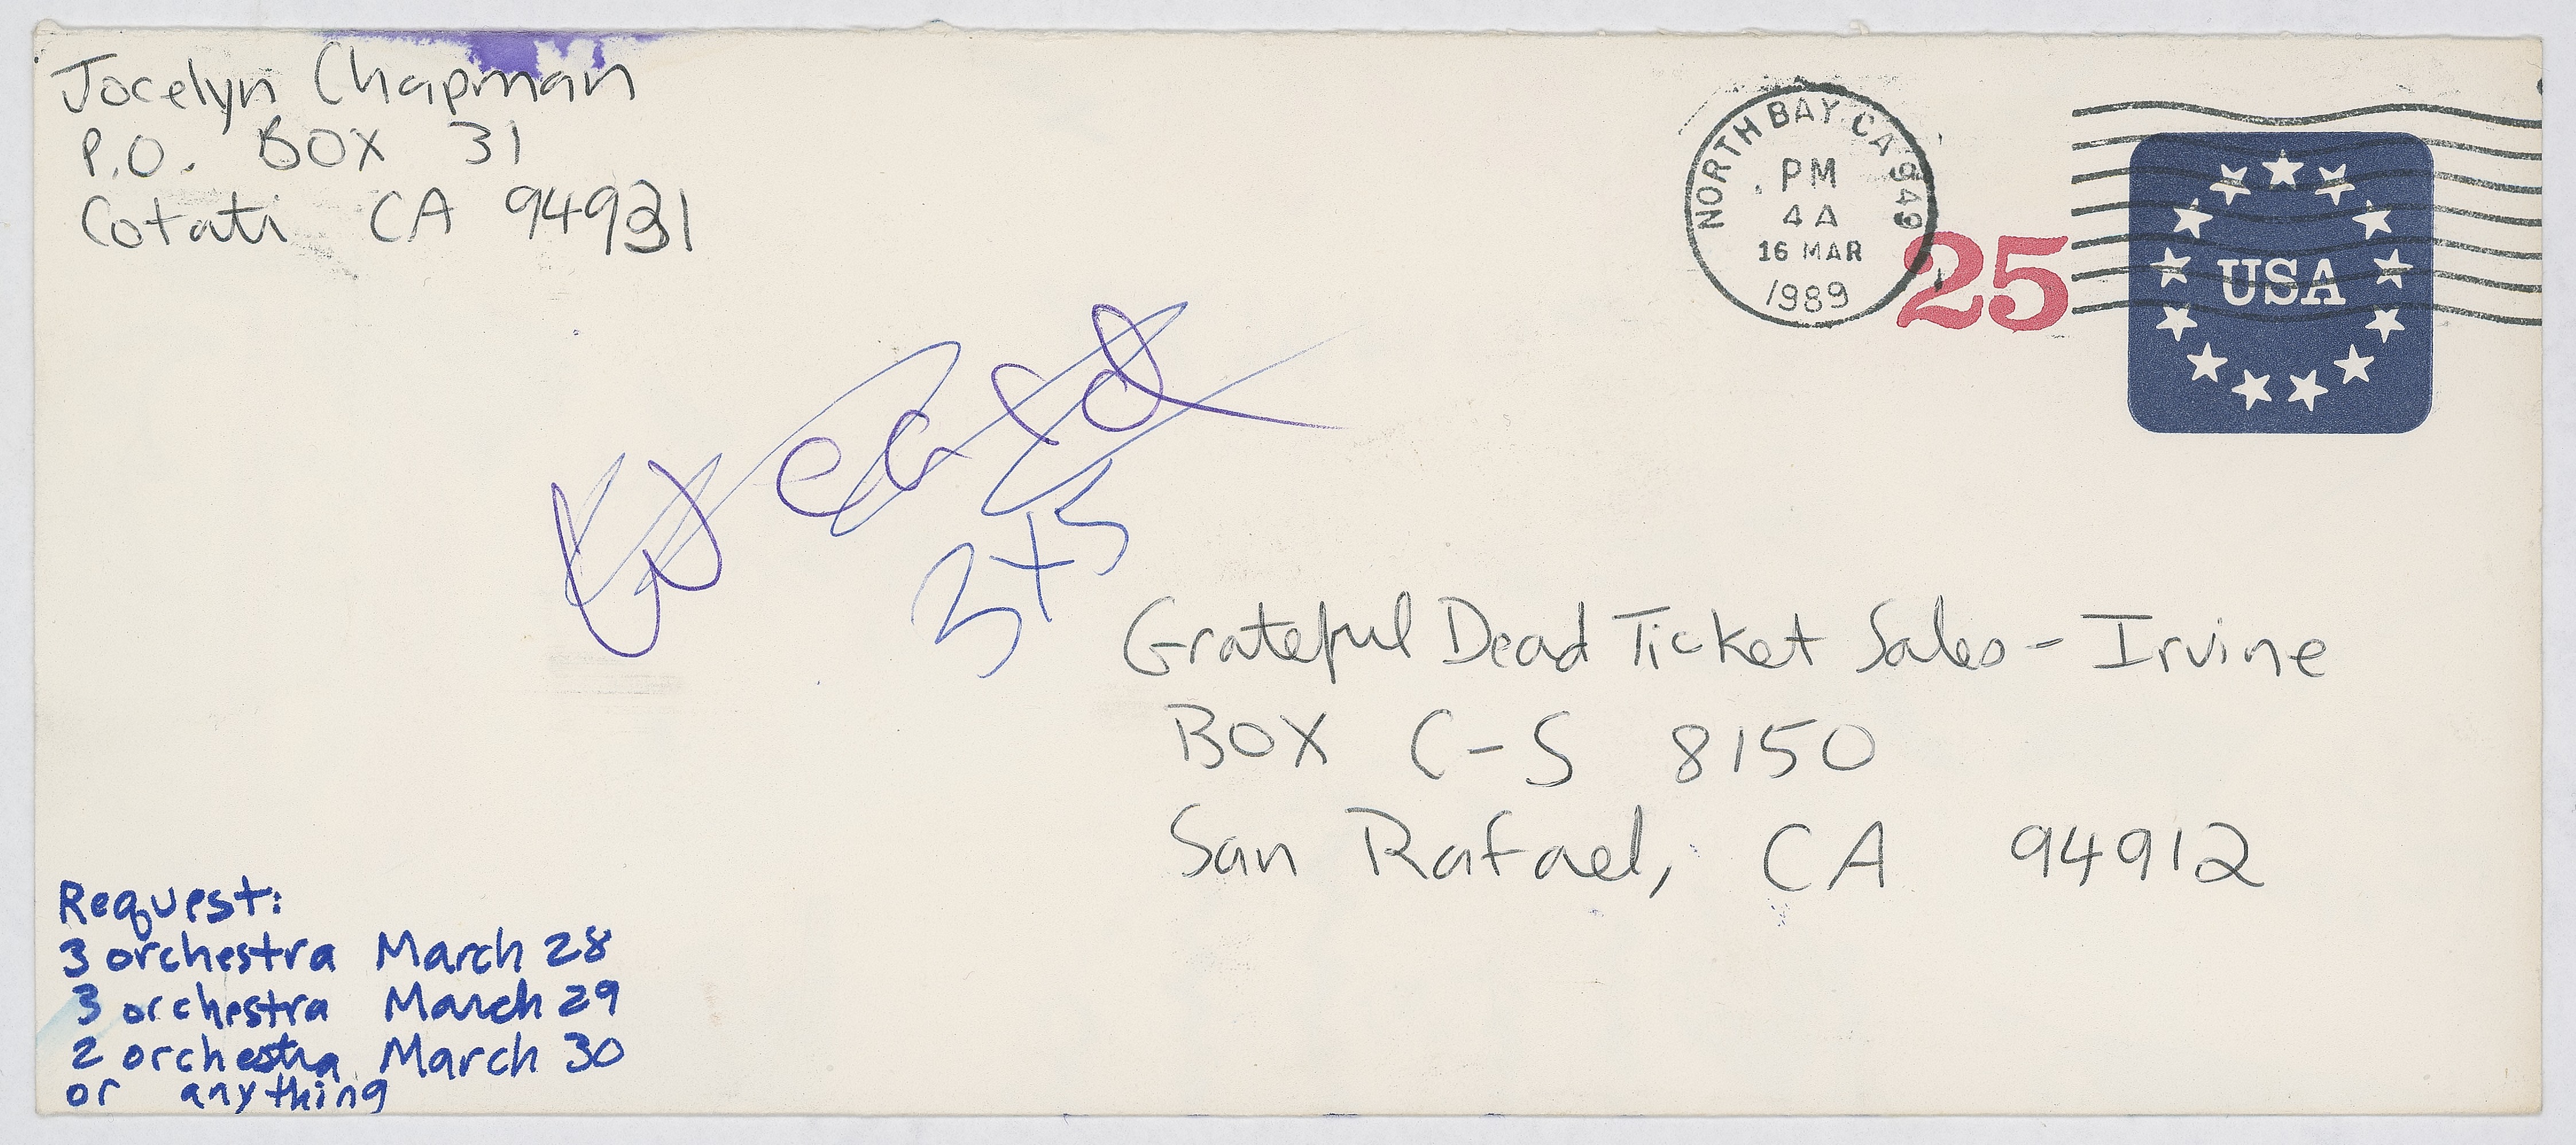 Jocelyn Chapman
P.O. BOX 31
Cotati CA 94931
NORTH BAY CA 949
PM
4 A
16 MAR
1989
25
USA
3x5
Grateful Dead Ticket Sales - Irvine
BOX C-S 8150
San Rafael, CA 94912
Request:
3 orchestra March 28
3 orchestra March 29
2 orchestra March 30
or anything